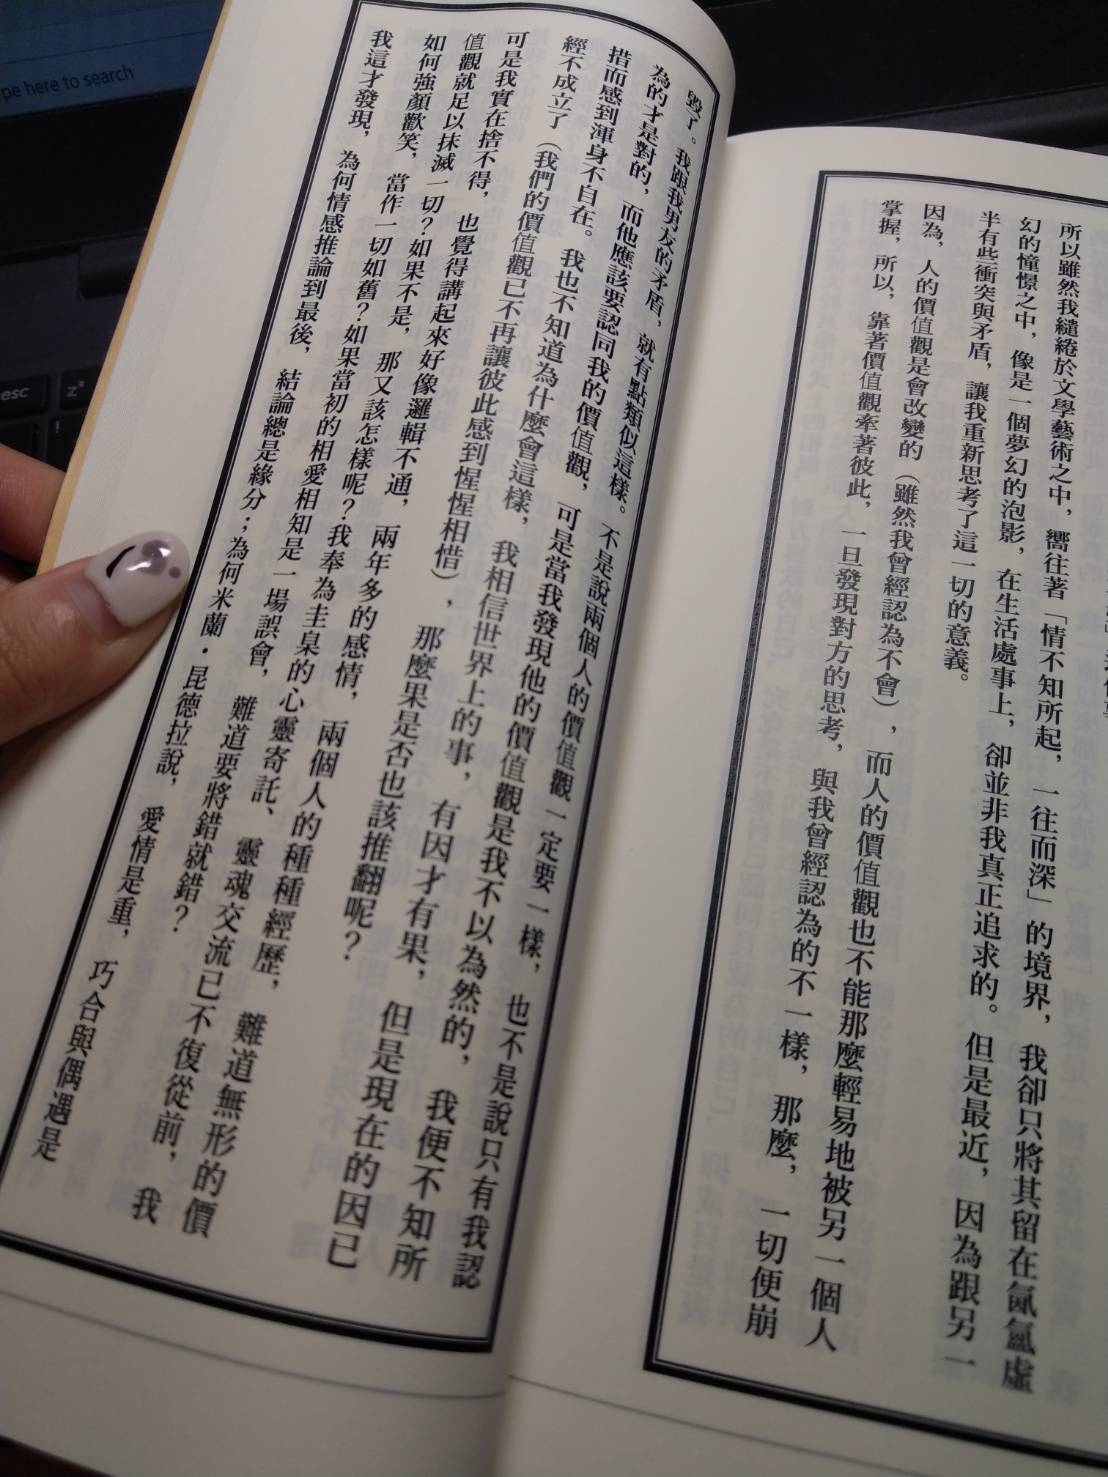 所以雖然我繾綣於文學藝術之中，嚮往著「情不知所起，一往而深」的境界，我卻只將其留在氤氳虛
幻的憧憬之中，像是一個夢幻的泡影，在生活處事上，卻並非我真正追求的。但是最近，因為跟另一
半有些衝突與矛盾，讓我重新思考了這一切的意義。
因為，人的價值觀是會改變的（雖然我曾經認為不會），而人的價值觀也不能那麼輕易地被另一個人
掌握，所以，靠著價值觀牽著彼此，一旦發現對方的思考，與我曾經認為的不一樣，那麼，一切便崩
毀了。我跟我男友的矛盾，就有點類似這樣。不是說兩個人的價值觀一定要一樣，也不是說只有我認
為的才是對的，而他應該要認同我的價值觀，可是當我發現他的價值觀是我不以為然的，我便不知所
措而感到渾身不自在。我也不知道為什麼會這樣，我相信世界上的事，有因才有果，但是現在的因已
經不成立了（我們的價值觀已不再讓彼此感到惺惺相惜），那麼果是否也該推翻呢？
可是我實在捨不得，也覺得講起來好像邏輯不通，兩年多的感情，兩個人的種種經歷，難道無形的價
值觀就足以抹滅一切？如果不是，那又該怎樣呢？我奉為圭臬的心靈寄託、靈魂交流已不復從前，我
如何強顏歡笑，當作一切如舊？如果當初的相愛相知是一場誤會，難道要將錯就錯？
我這才發現，為何情感推論到最後，結論總是緣分；為何米蘭・昆德拉說，愛情是重，巧合與偶遇是
pe here to search
esc